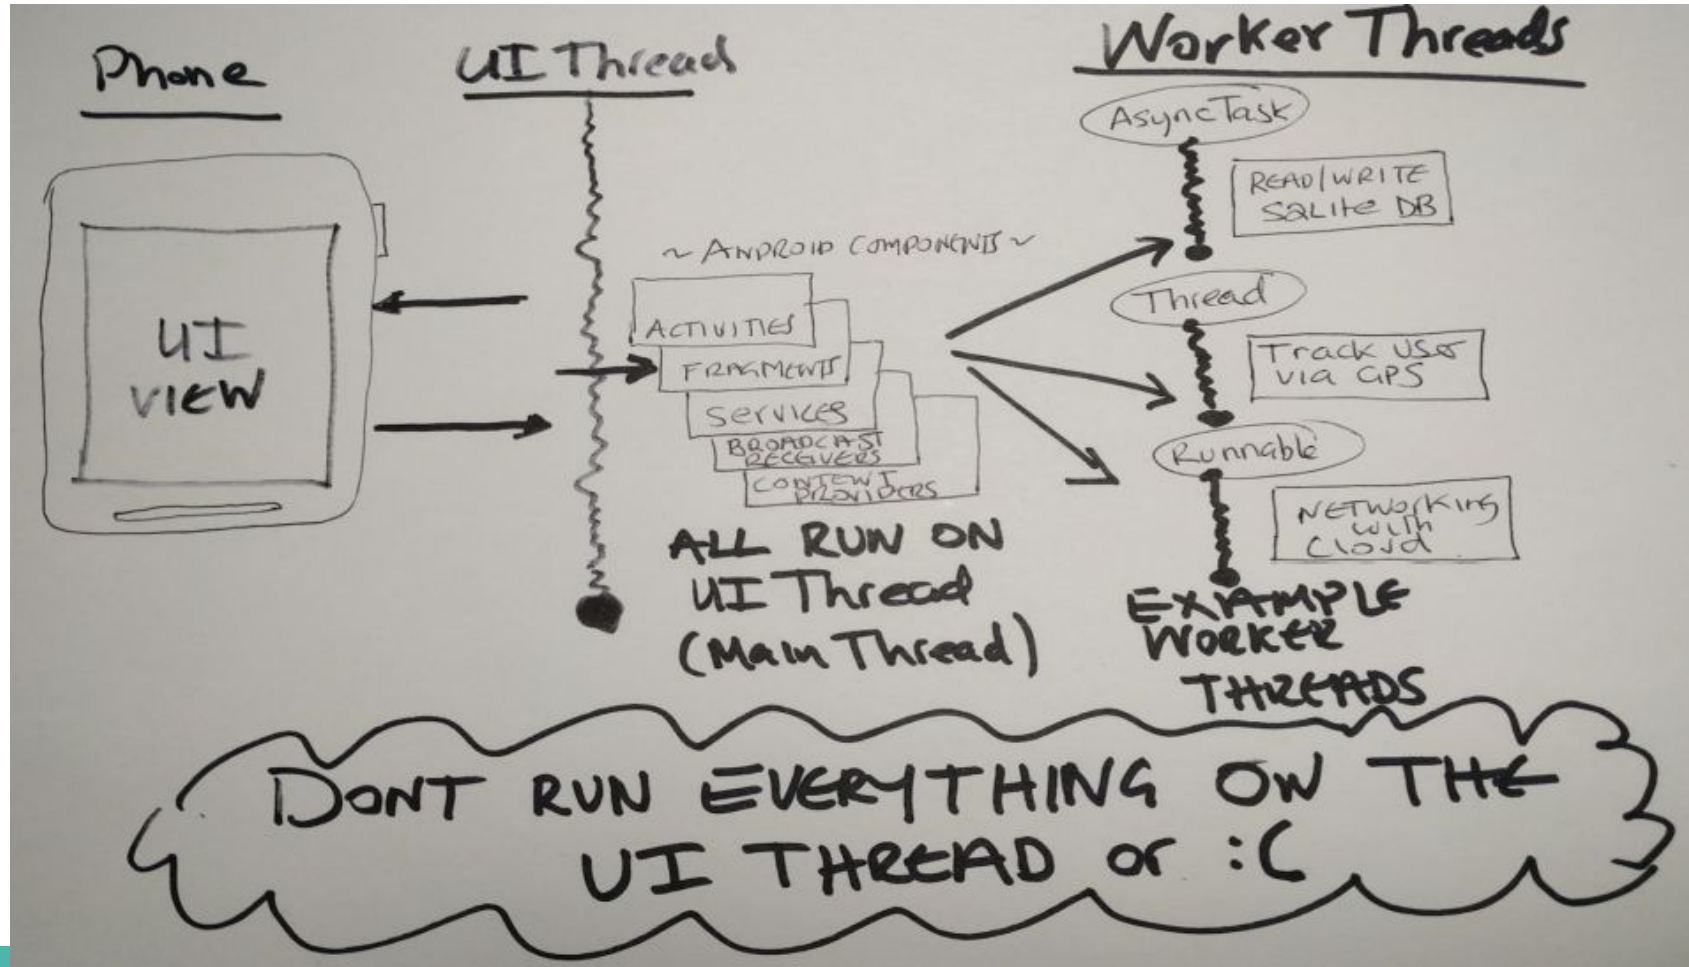 Phone
UI Thread
Worker Threads
UI
VIEW
~ ANDROID COMPONENTS ~
ACTIVITIES
FRAGMENTS
Services
BROADCAST
RECEIVERS
CONTENT
PROVIDERS
ALL RUN ON
UI Thread
(Main Thread)
AsyncTask
READ/WRITE
SQLite DB
Thread
Track User
via GPS
Runnable
NETWORKING
with
Cloud
EXAMPLE
WORKER
THREADS
DONT RUN EVERYTHING ON THE
UI THREAD or :(